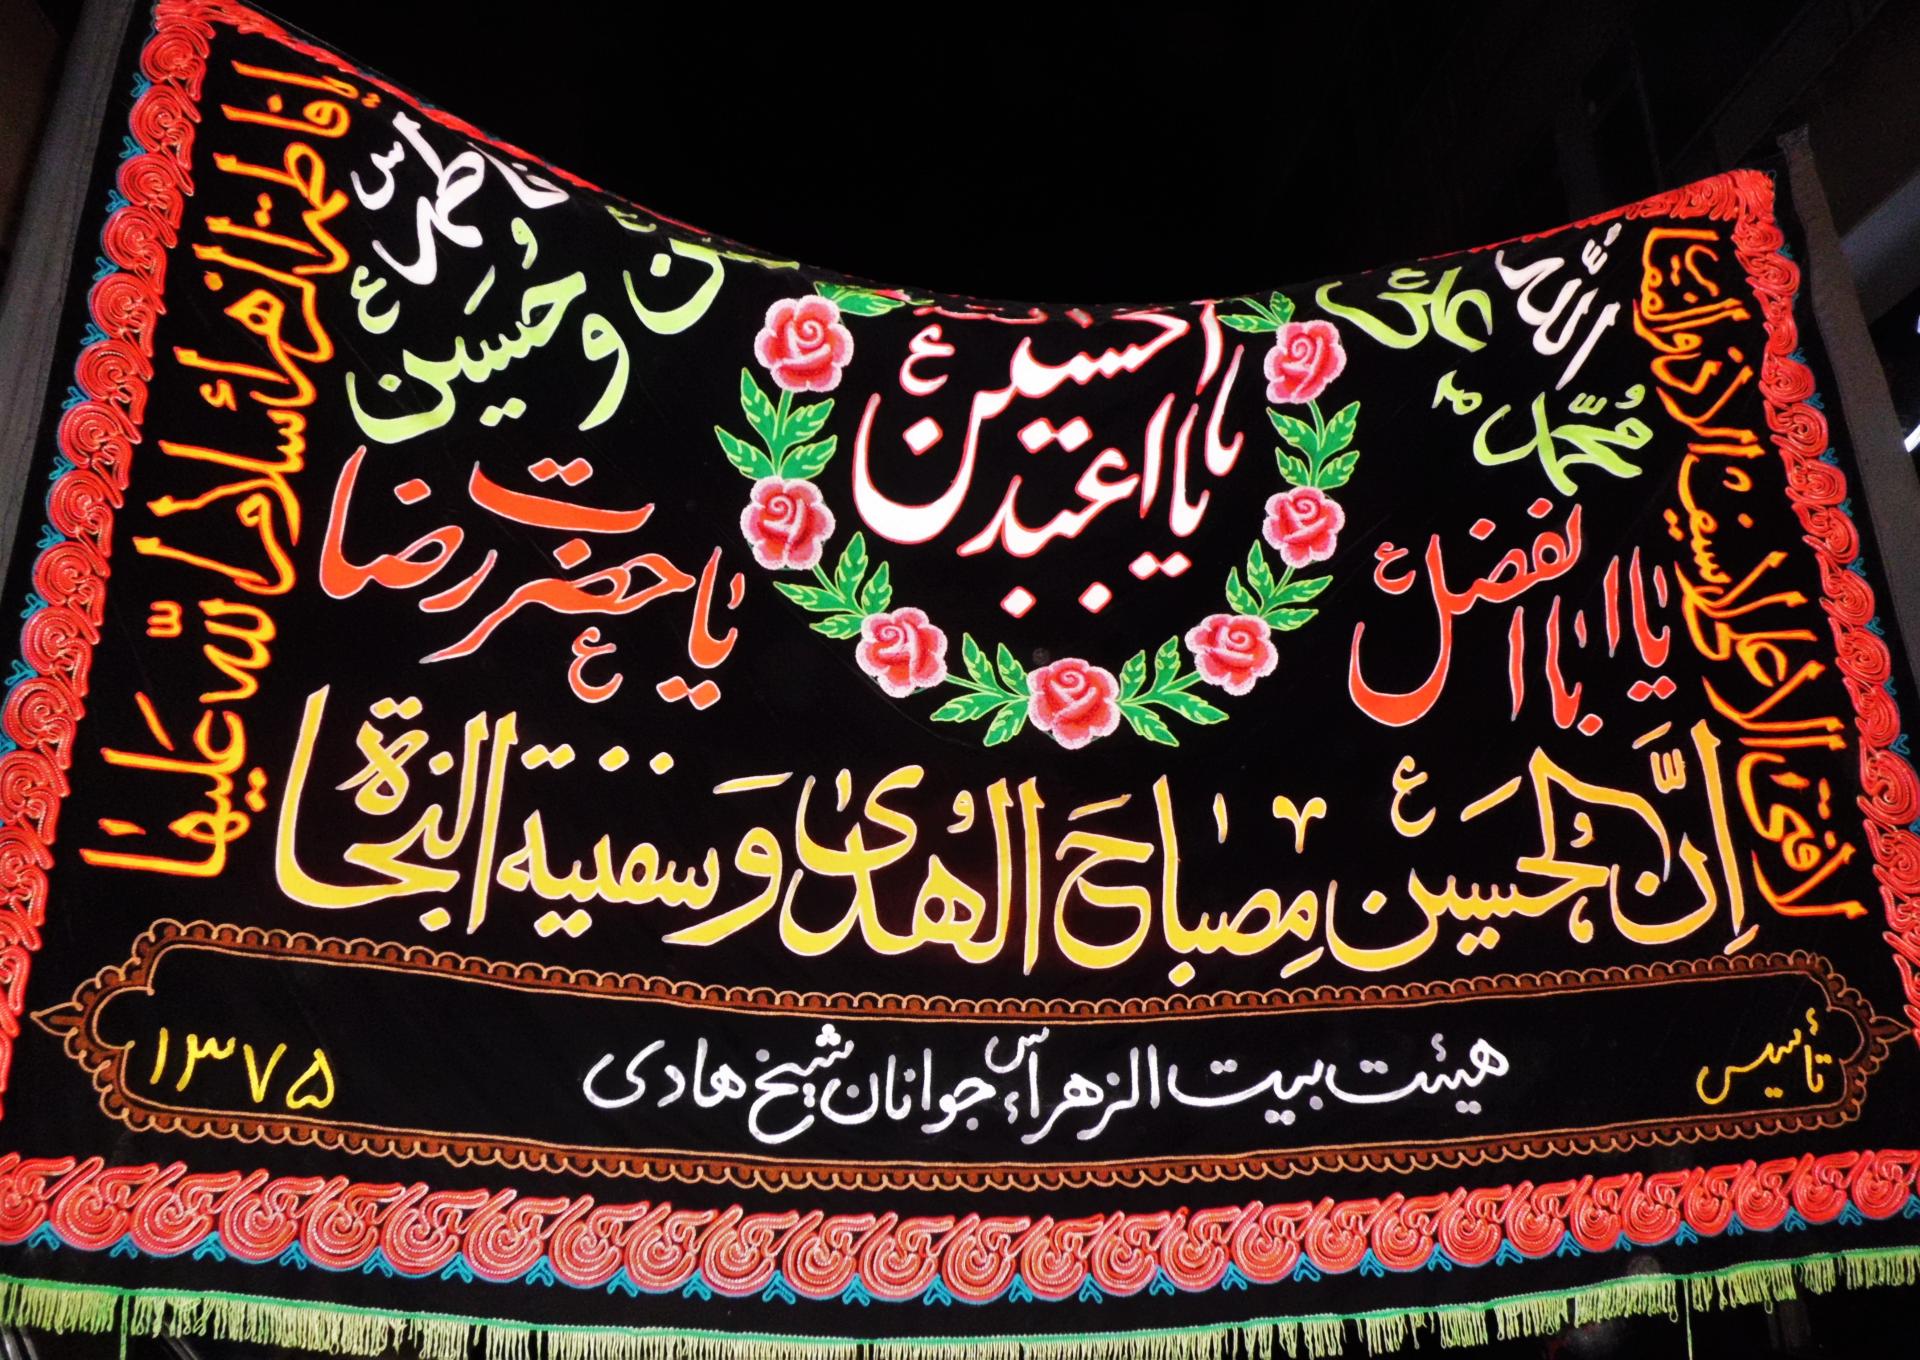 الله
محمد ص
علی ع
فاطمه س
ن و حسین ع
یا ابا عبد
الحسین ع
یا ابا الفضل ع
یا حضرت رضا ع
اِنَّ الحسین ع مِصباحَ الهُدیٰ وَ سفینة النجاة
تأسیس
هیئت بیت الزهراء س جوانان شیخ هادی
۱۳۷۵
لا فتی الا علی لا سیف الا ذوالفقار
یا فاطمة الزهراء سلام اللّه علیها